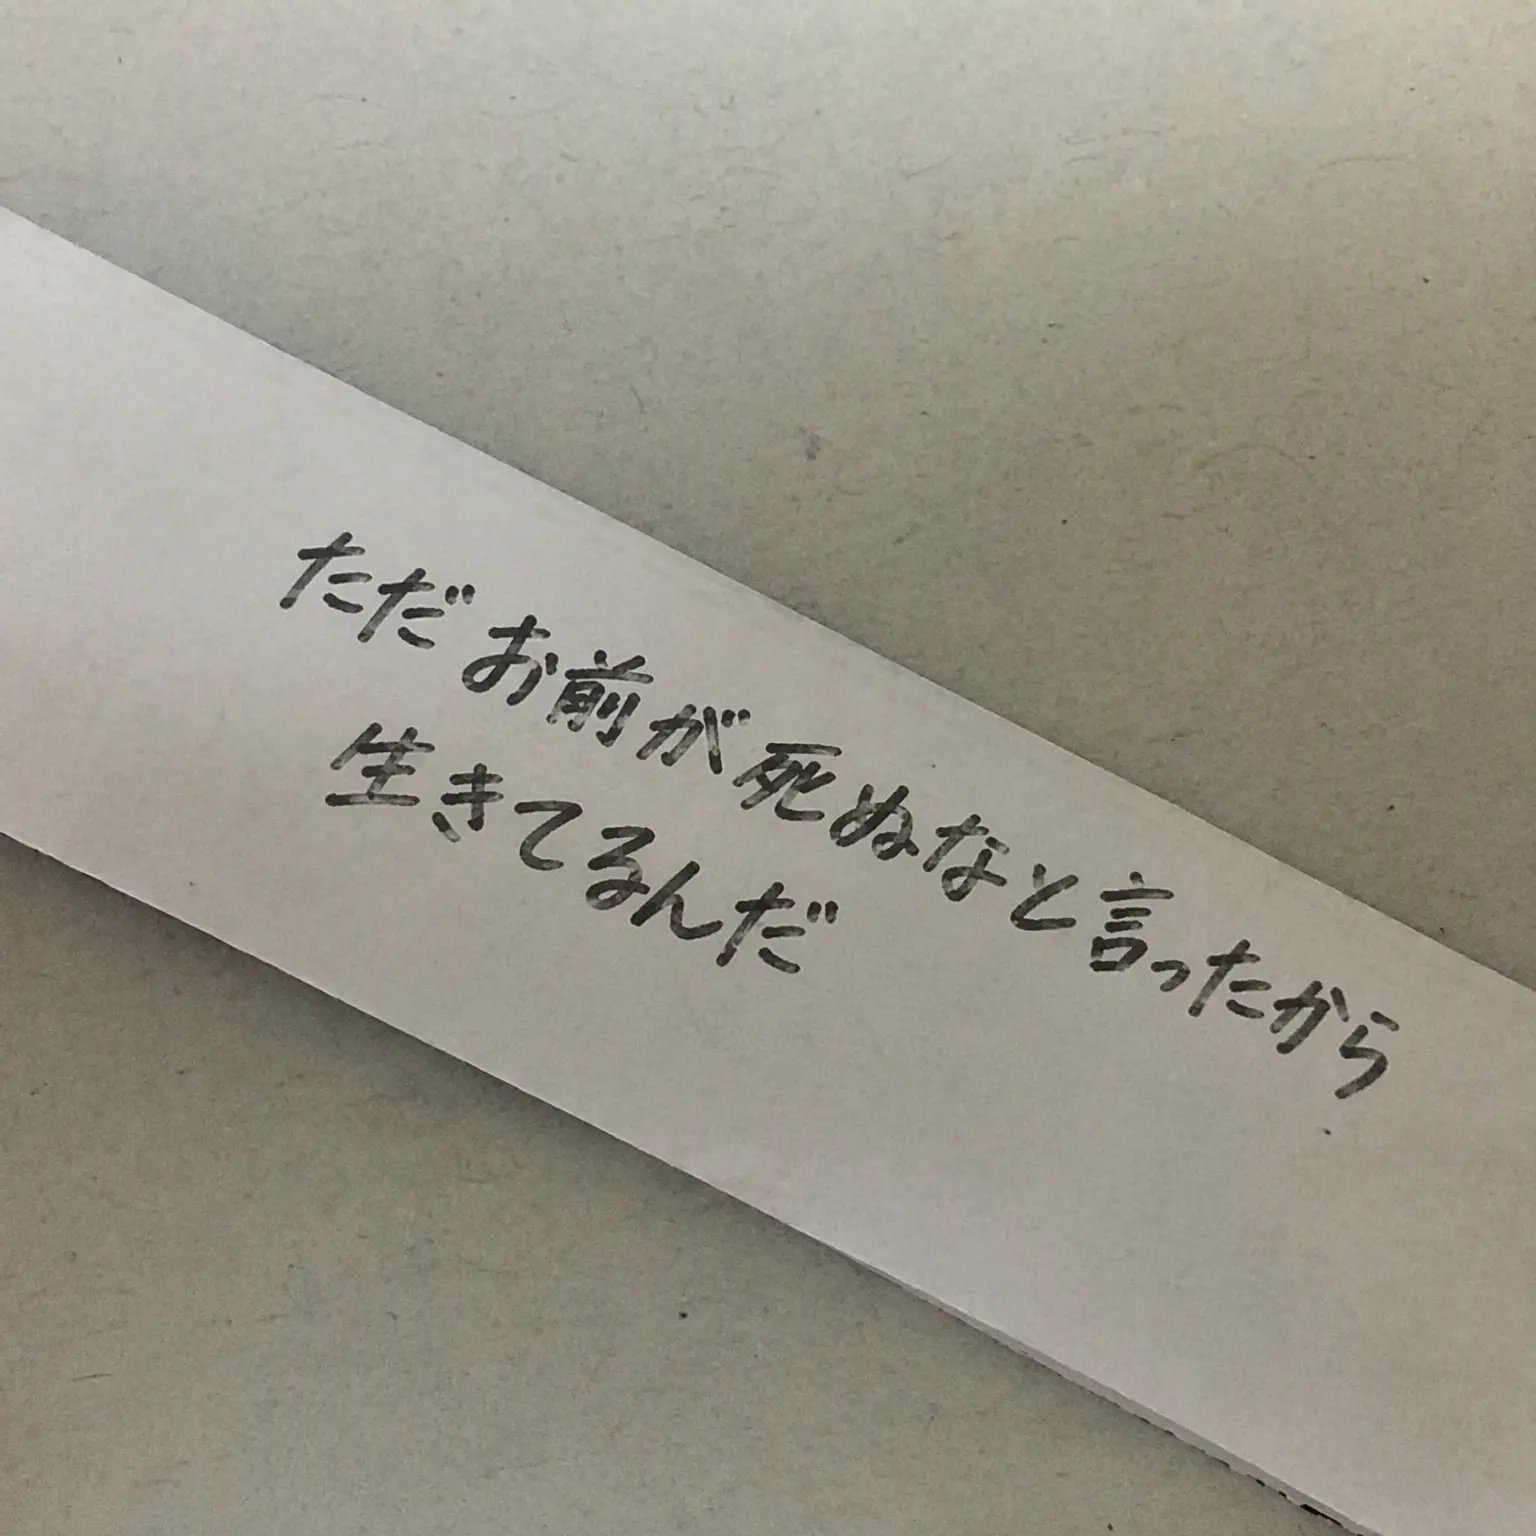 ただお前が死ぬなと言ったから
生きてるんだ